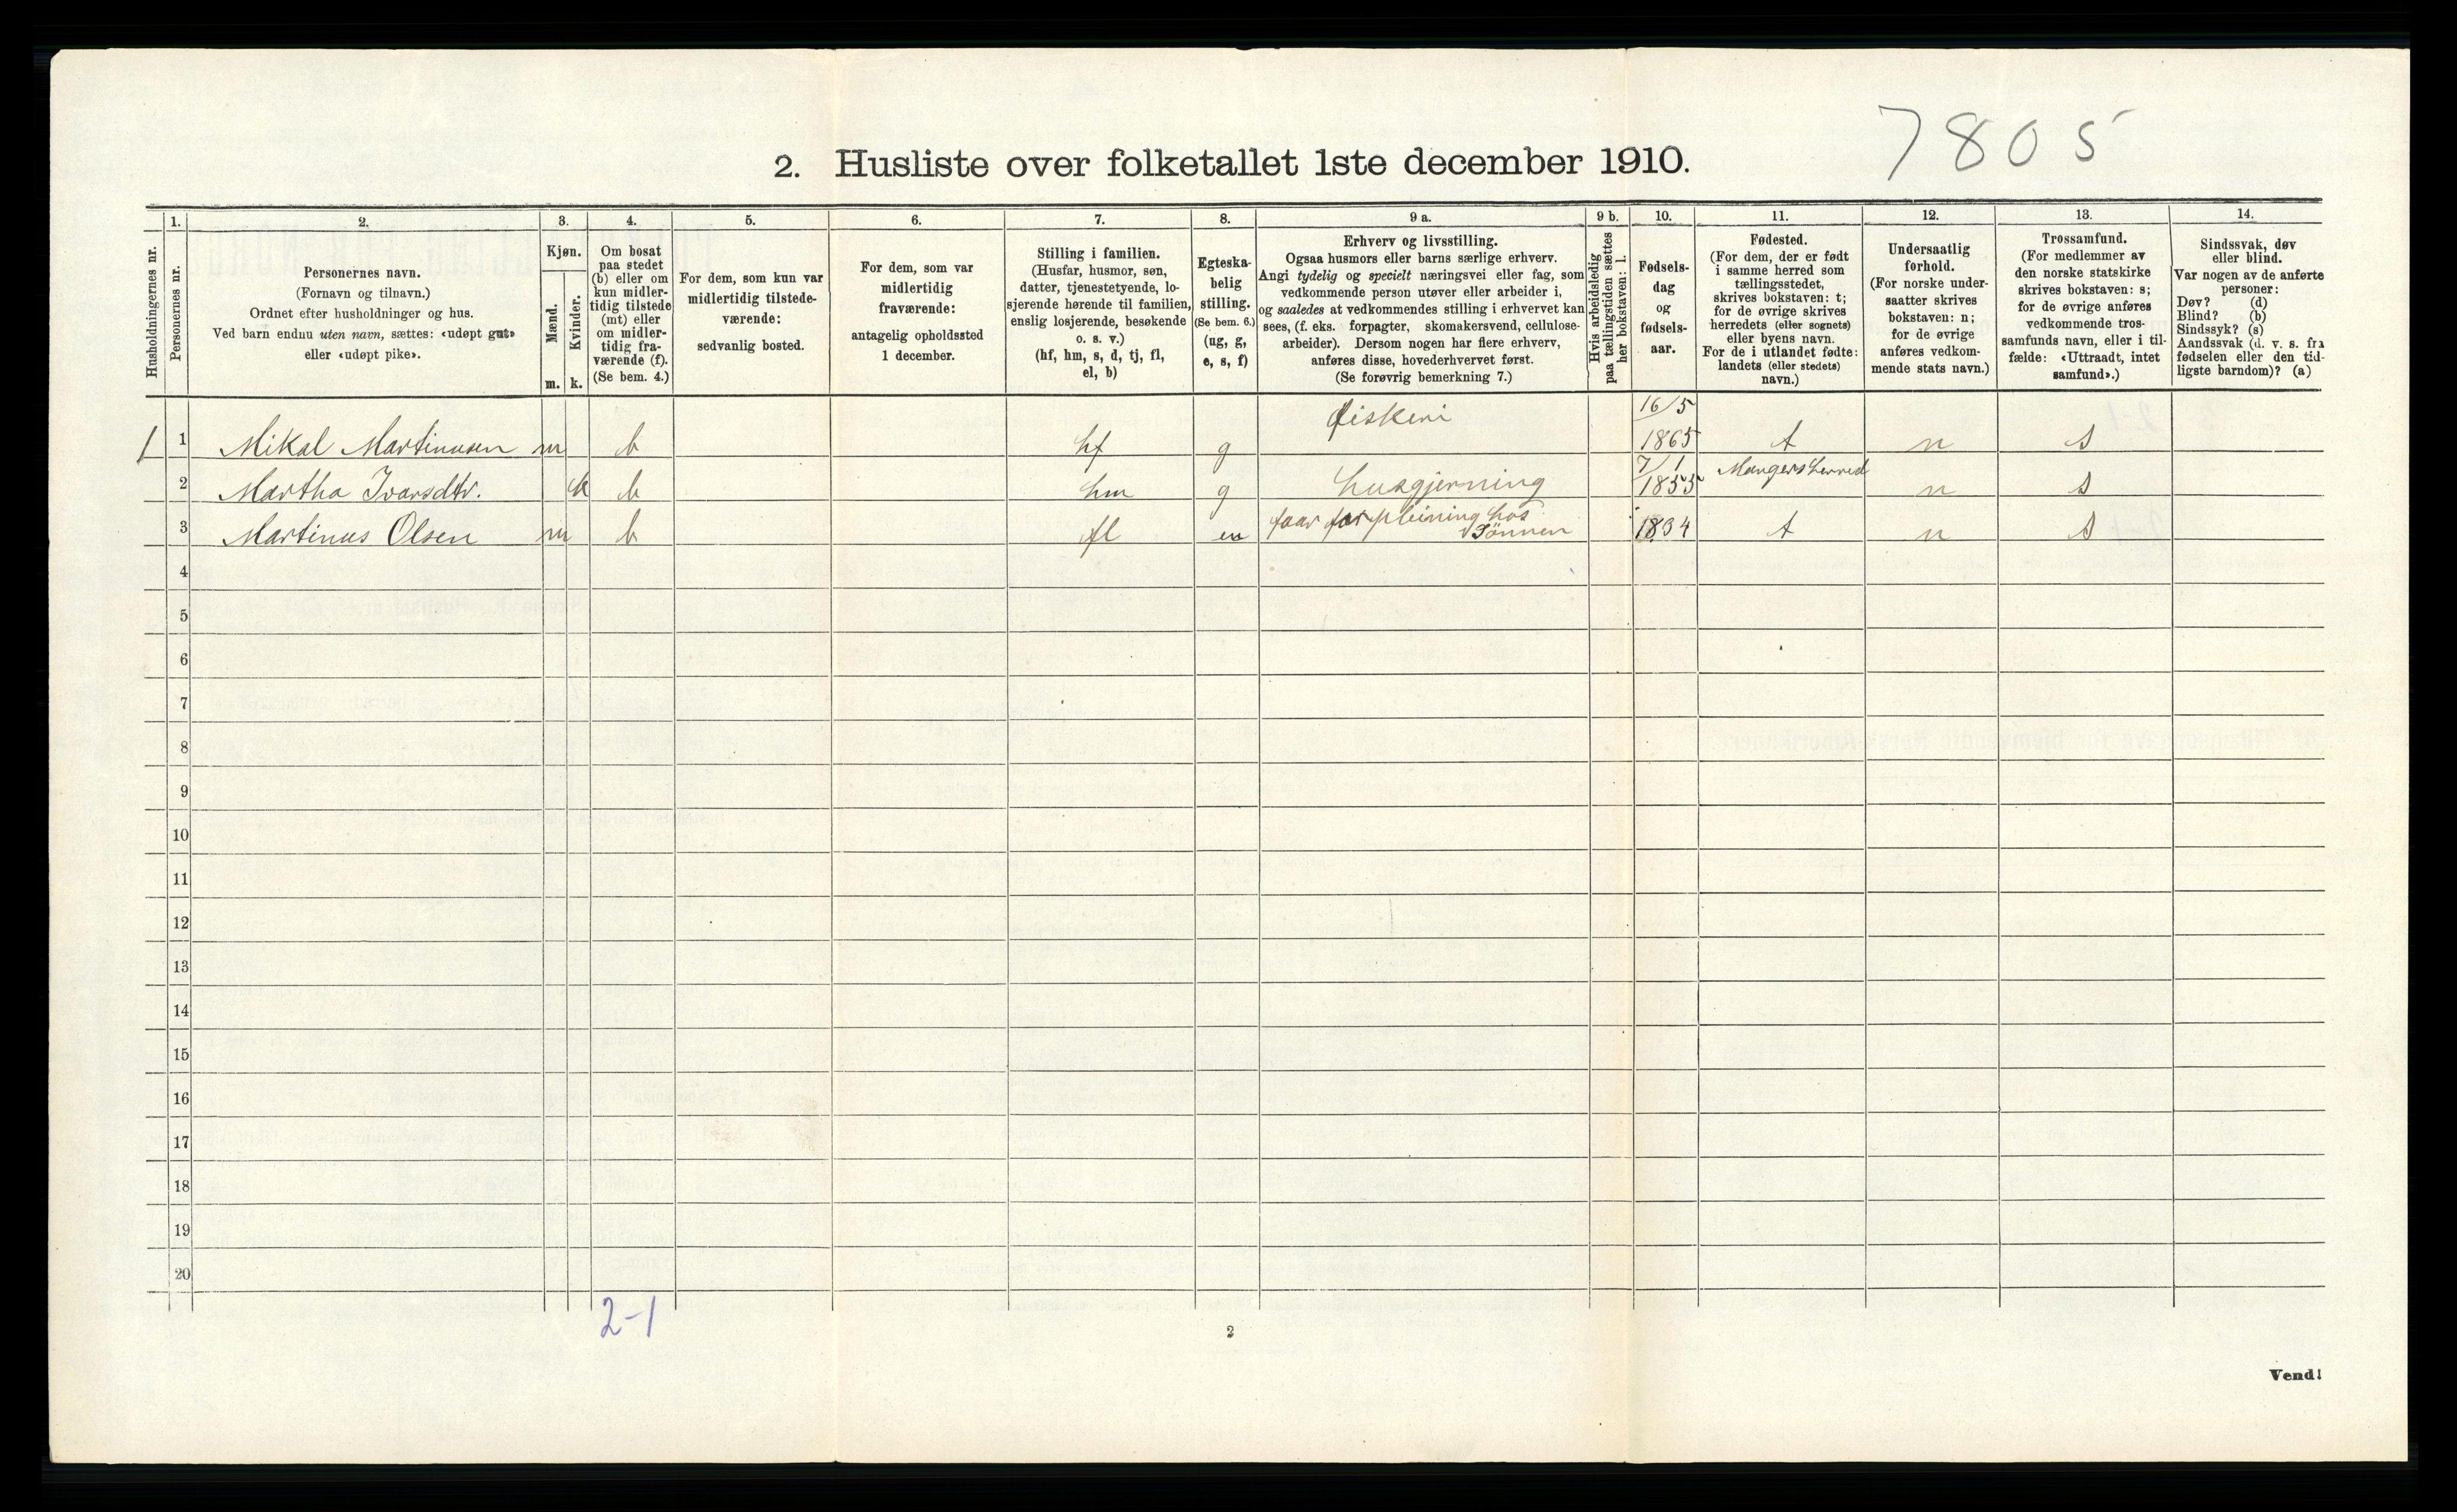 7805
2. Husliste over folketallet 1ste december 1910.
Husholdningernes nr.
1.
Personernes nr.
2.
Personernes navn.
(Fornavn og tilnavn.)
Ordnet efter husholdninger og hus.
Ved barn endnu uten navn, sættes: «udøpt gut»
eller «udøpt pike».
3.
Kjøn.
Mænd.
Kvinder.
m. k.
4.
Om bosat
paa stedet
(b) eller om
kun midler-
tidig tilstede
(mt) eller
om midler-
tidig fra-
værende (f).
(Se bem. 4.)
5.
For dem, som kun var
midlertidig tilstede-
værende:
sedvanlig bosted.
6.
For dem, som var
midlertidig
fraværende:
antagelig opholdssted
1 december.
7.
Stilling i familien.
(Husfar, husmor, søn,
datter, tjenestetyende, lo-
sjerende hørende til familien,
enslig losjerende, besøkende
o. s. v.)
(hf, hm, s, d, tj, fl,
el, b)
8.
Egteska-
belig
stilling.
(Se bem. 6.)
(ug, g,
e, s, f)
9 a.
Erhverv og livsstilling.
Ogsaa husmors eller barns særlige erhverv.
Angi tydelig og specielt næringsvei eller fag, som
vedkommende person utøver eller arbeider i,
og saaledes at vedkommendes stilling i erhvervet kan
sees, (f. eks. forpagter, skomakersvend, cellulose-
arbeider). Dersom nogen har flere erhverv,
anføres disse, hovederhvervet først.
(Se forøvrig bemerkning 7.)
9 b.
Hvis arbeidsledig
paa tællingstiden sættes
her bokstaven: l.
10.
Fødsels-
dag
og
fødsels-
aar.
11.
Fødested.
(For dem, der er født
i samme herred som
tællingsstedet,
skrives bokstaven: t;
for de øvrige skrives
herredets (eller sognets)
eller byens navn.
For de i utlandet fødte:
landets (eller stedets)
navn.)
12.
Undersaatlig
forhold.
(For norske under-
saatter skrives
bokstaven: n;
for de øvrige
anføres vedkom-
mende stats navn.)
13.
Trossamfund.
(For medlemmer av
den norske statskirke
skrives bokstaven: s;
for de øvrige anføres
vedkommende tros-
samfunds navn, eller i til-
fælde: «Uttraadt, intet
samfund».)
14.
Sindssvak, døv
eller blind.
Var nogen av de anførte
personer:
Døv? (d)
Blind? (b)
Sindssyk? (s)
Aandssvak (d. v. s. fra
fødselen eller den tid-
ligste barndom)? (a)
1 1 Mikal Martinusen m b hf g Fiskeri 16/5 1865 t n s
2 Martha Ivarsdtr. k b hm g husgjerning 7/1 1855 Mangers herred n s
3 Martinus Olsen m b fl faar forpleining hos Sønnen 1834 t n s
4
5
6
7
8
9
10
11
12
13
14
15
16
17
18
19
20
2-1
2
Vend!